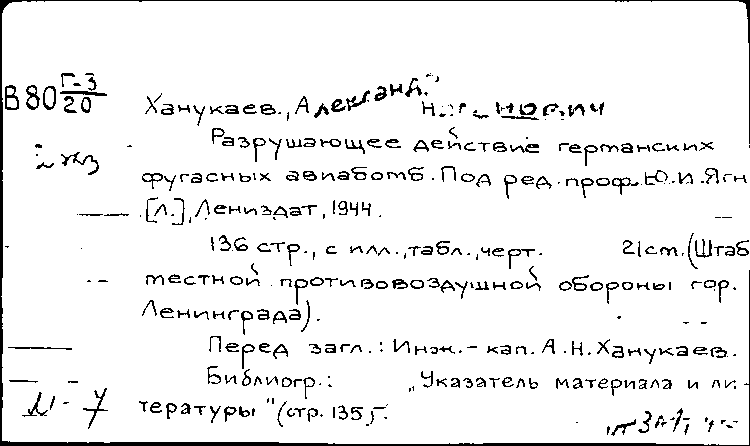 В80 Г-3/20
Ханукаев, Александр
Разрушающее действие германских
фугасных авиабомб. Под ред. проф. Ю.И. Ягн
[Л.], Лениздат, 1944.
136 стр., с илл., табл., черт. 21 cm. (Штаб
местной противовоздушной обороны гор.
Ленинграда).
Перед загл.: Инж.-кап. А.Н. Ханукаев.
Библиогр.: „Указатель материала и ли-
тературы" (стр. 135).
М-7